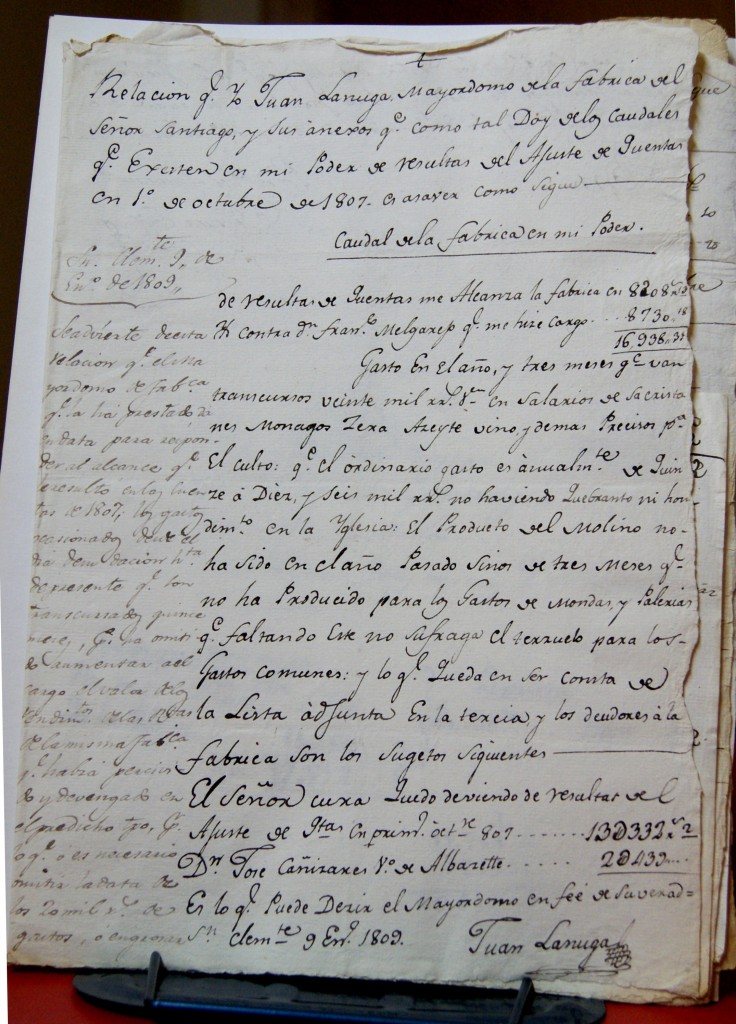 Relacion q.e Yo Juan Lanuga Mayordomo dela fabrica del
Señor Santiago, y sus ànexos q.e como tal Doy delos Caudales
q.e Existen en mi Poder de resultas del Ajuste de Quentas
en 1.o de octubre de 1807. es asaver como sigue
Caudal dela fabrica en mi Poder.
Sn. Clem.te 9, de
En.o de 1809,,
de resultas de Quentas me Alcanza la fabrica en
contra dn. Fran.co Melgarejo q.e me hize cargo 8730
Gasto En el año, y tres meses q.e van
transcursos veinte mil rr.s v.n en Salarios de Sacrista
nes Monagos Zera Azeyte vino, y demas Precisos p.a
El culto: q.e el òrdinario gasto es ànualm.te de Quin
ze à Diez, y seis mil rr.s no haviendo Quebranto ni hon
dim.to en la Yglesia: El Producto del Molino no
ha sido en el año Pasado sinos de tres Meses q.e
no ha Producido para los Gastos de Mondas, y Palerias
q.e faltando Este no sufraga el terzuelo para los
Gastos comunes: y lo q.e Queda en ser consta de
la Lista àdjunta En la tercia, y los deudores à la
fabrica son los sugetos siguientes
Se advierte de esta
relacion q.e el ma
yordomo de fab.ca
q.e la ha prestado dà
en data para respon-
der al alcance q.e
le resultó en las Cuen
tas de 1807, los gastos
ocasionados desde el
dia de su dacion h.ta
de presente q.e son
transcurridos quince
meses, y ha omiti
do aumentar ael
cargo el valor delos
rendim.tos de las
de la misma fab.ca
q.e habrá percivi
do y devengado en
el predicho tpo, y
lo q.e es necesario
omitir la data de
los 20 mil r.s de
gastos, ò engrosar
El Señor cura Quedo deviendo de resultas del
Ajuste de Qtas En prim.o oct.re 807 13D332 r.s 2
Dn. Jose Cañizares V.o de Albazette 2D439
Es lo q.e Puede Dezir el Mayordomo en feé de su verad=
Sn. Clem.te 9 En.o 1809.
Juan Lanuga